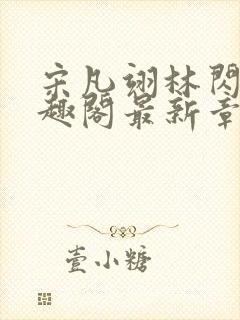 宋凡翊林閃
趣閣最新章
壹小糖